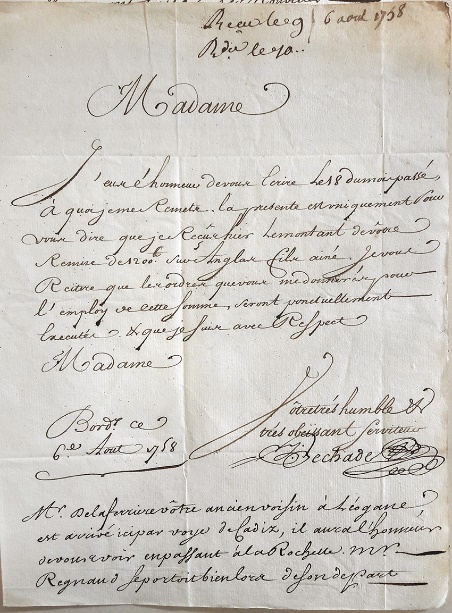 Recu le 9 6 aout 1758
Rdu le 10..
Madame
J'eus l'honneur de vous Ecrire le 18 du mois passé,
A quoi je me Remets, la presente est uniquement Pour
vous dire que je Reçûs hier le montant de vôtre
Remise de 1200# sur Anglas fils ainé. Je vous
Reitre que les ordres que vous me donnerés pour
l'employ de cette somme, seront ponctuellement
Executés & que je suis avec Respect
Madame
Vôtre trés humble &
trés obeissant serviteur
Bordx ce
6e Aout 1758
Mr. Delaferriere vôtre ancien voisin à Léogane
est arrivé ici par voye de Cadiz, il aura l'honneur
de vous voir en passant à la Rochelle. Mr
Regnaud se portoit bien lors de son depart